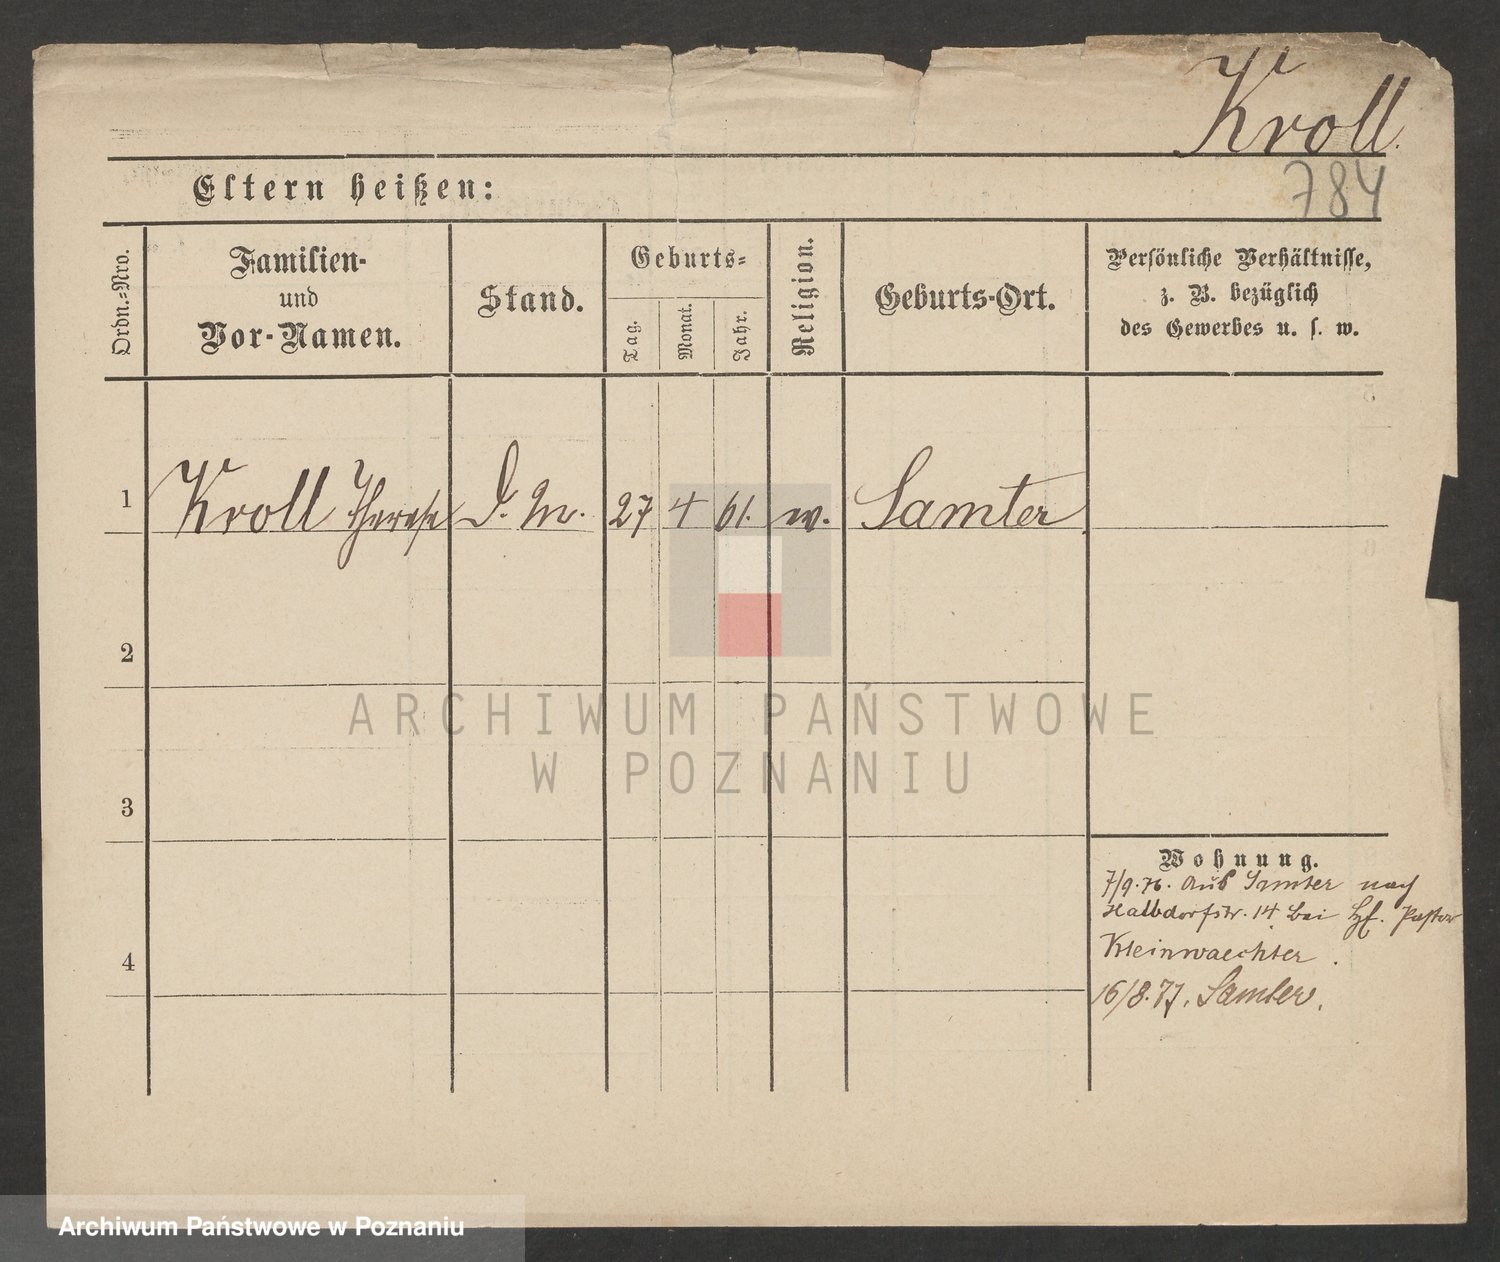 Kroll.
784
Eltern heißen:
Ordn.-Nro.
Familien-
und
Vor-Namen.
Stand.
Geburts-
Tag.
Monat.
Jahr.
Religion.
Geburts-Ort.
Persönliche Verhältnisse,
z. B. bezüglich
des Gewerbes u. s. w.
1 Kroll Therese D. M. 27 4 61. w. Samter
2
3
4
Wohnung.
7/9.76. Aus Samter nach
Halbdorfstr. 14 bei Hf. Pastor
Kleinwaechter.
16/8.77. Samter.
ARCHIWUM PAŃSTWOWE
W POZNANIU
Archiwum Państwowe w Poznaniu